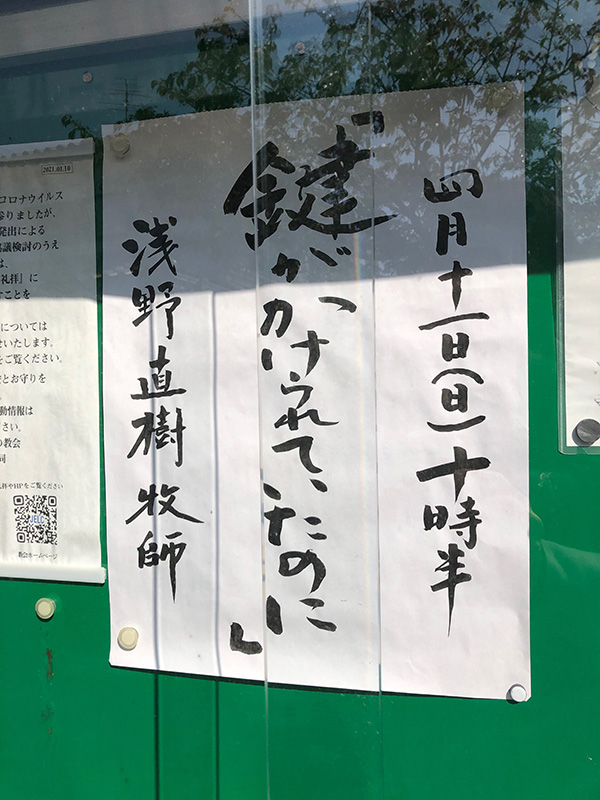 四月十一日(日)十時半
「鍵がかけられていたのに」
浅野直樹牧師
2021.01.18
コロナウイルス
参りましたが、
発出による
協議検討のうえ
は、
礼拝』に
すことを
については
せいたします。
をご覧ください。
とお守りを
動情報は
ださい。
の教会
同
礼拝やHPをご覧ください
JELC
教会ホームページ